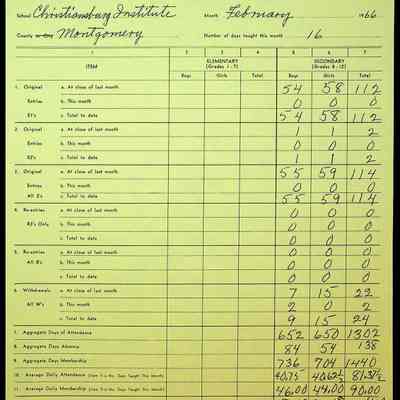 School Christiansburg Institute Month February 1966
County or City Montgomery Number of days taught this month 16
1 2 3 4 5 6 7
ITEM ELEMENTARY (Grades 1 - 7) SECONDARY (Grades 8 - 12)
Boys Girls Total Boys Girls Total
1. Original a. At close of last month 54 58 112
Entries b. This month 0 0 0
E1's c. Total to date 54 58 112
2. Original a. At close of last month 1 1 2
Entries b. This month 0 0 0
E2's c. Total to date 1 1 2
3. Original a. At close of last month 55 59 114
Entries b. This month 0 0 0
All E's c. Total to date 55 59 114
4. Re-entries a. At close of last month 0 0 0
R2's Only b. This month 0 0 0
c. Total to date 0 0 0
5. Re-entries a. At close of last month 0 0 0
All R's b. This month 0 0 0
c. Total to date 0 0 0
6. Withdrawals a. At close of last month 7 15 22
All W's b. This month 2 0 2
c. Total to date 9 15 24
7. Aggregate Days of Attendance 652 650 1302
8. Aggregate Days Absence 84 54 138
9. Aggregate Days Membership 736 704 1440
10. Average Daily Attendance (Item 7 ÷ No. Days Taught This Month) 40.75 40.62½ 81.37½
11. Average Daily Membership (Item 9 ÷ No. Days Taught This Month) 46.00 44.00 90.00